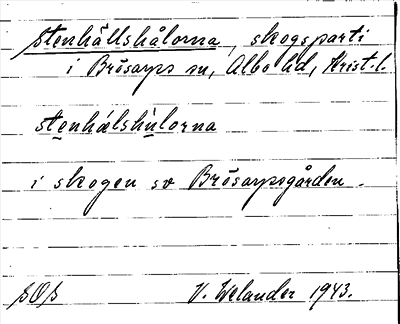 Stenhällshålorna, skogsparti
i Brösarps sn, Albo hd, Krist. l.
stenhælshùlorna
i skogen sv Brösarpsgården.
V. Welander 1943.